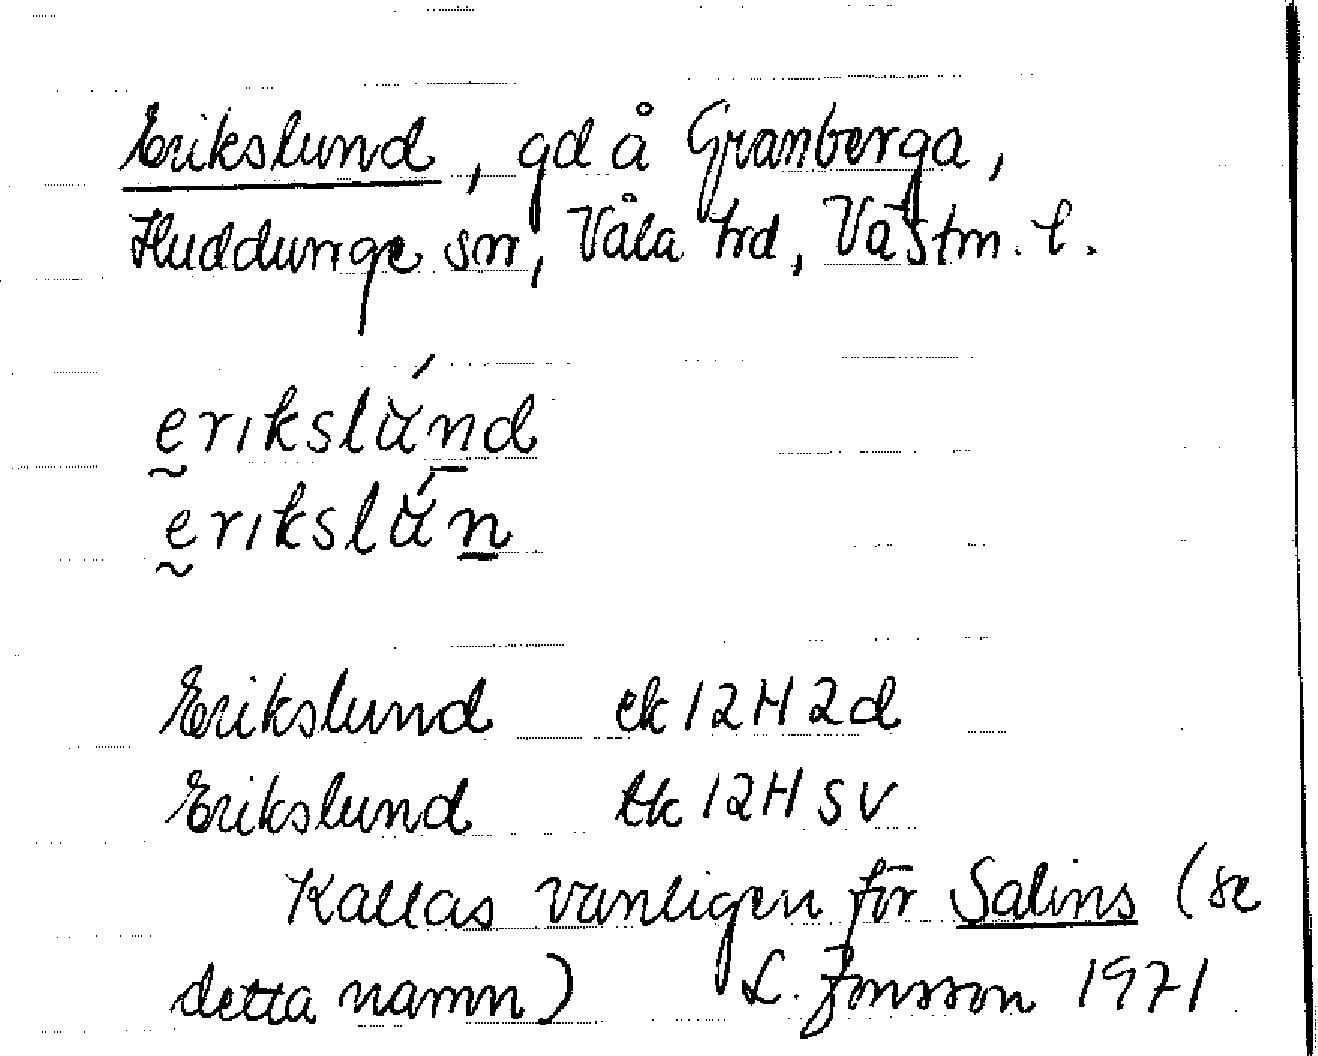 Erikslund, gd å Granberga,
Huddunge sn, Våla hd, Västm. l.
erikslŭ́nd
erikslŭ́n
Erikslund ek 12H2d
Erikslund tk 12H SV
Kallas vanligen för Salins (se
detta namn) L. Jonsson 1971